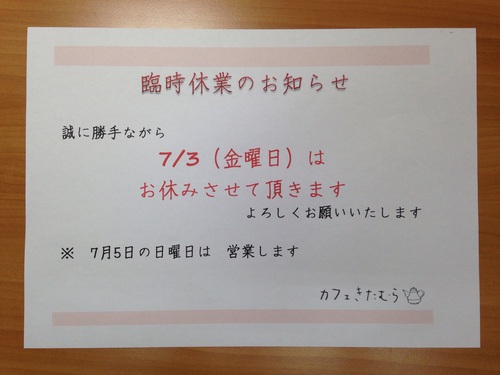 臨時休業のお知らせ
誠に勝手ながら
7/3（金曜日）は
お休みさせて頂きます
よろしくお願いいたします
※　7月5日の日曜日は　営業します
カフェきたむら